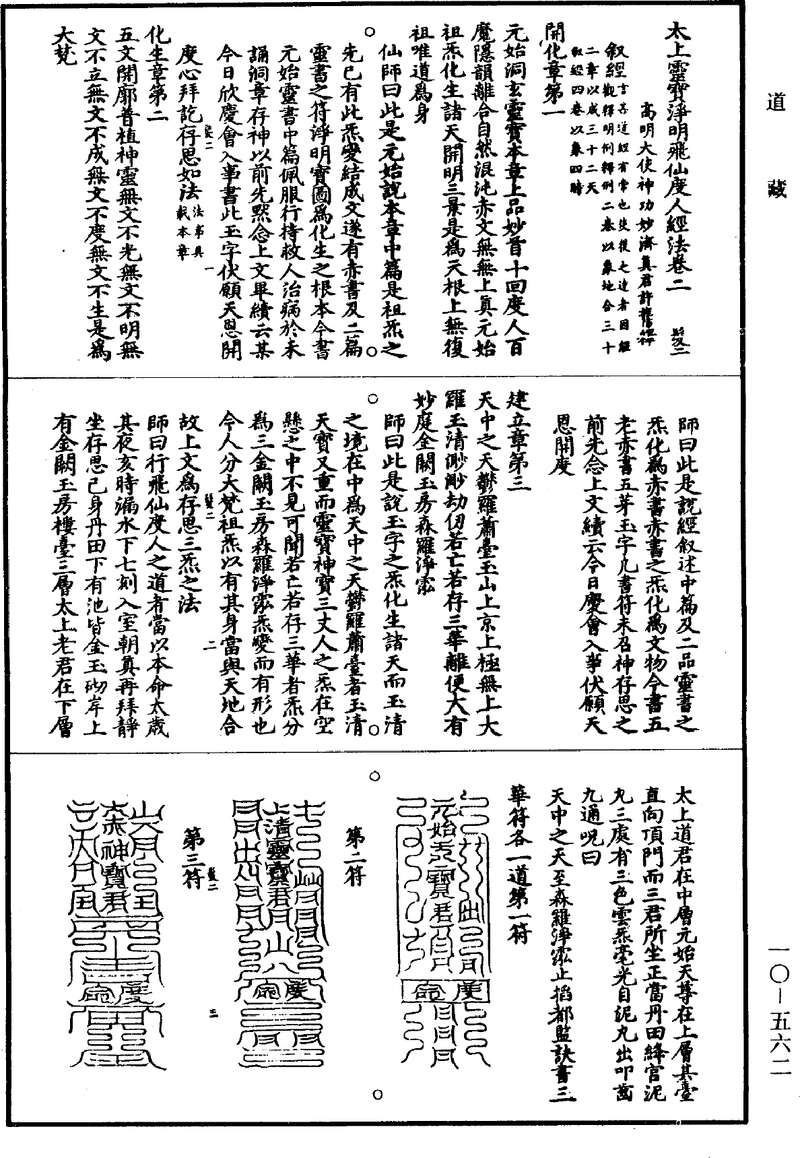 道藏
太上靈寶淨明飛仙度人經法卷二
髮二
高明大使神功妙濟真君許旌陽釋
叙經言善道經有常也使後之達者因經
叙經觀釋明例釋例二卷以象地合三十
二章以成三十二天
叙經四卷以象四時
開化章第一
元始洞玄靈寶本章上品妙首十回度人百
魔隱韻離合自然混沌赤文無無上真元始
祖炁化生諸天開明三景是為天根上無復
祖唯道為身
仙師曰此是元始說本章中篇是祖炁之
先已有此炁變結成文遂有赤書及二篇
靈書之符淨明寶圖為化生之根本今書
元始靈書中篇佩服行持救人治病於未
誦洞章存神以前先默念上文畢續云某
今日欣慶會入事書此玉字伏願天恩開
度心拜訖存思如法法事具載本章
髮二
一
化生章第二
五文開廓普植神靈無文不光無文不明無
文不立無文不成無文不度無文不生是為
大梵
師曰此是說經叙述中篇及二品靈書之
炁化為赤書赤書之炁化為文物今書五
老赤書五芽玉字凡書符未召神存思之
前先念上文續云今日慶會入事伏願天
恩開度
建立章第三
天中之天鬱羅蕭臺玉山上京上極無上大
羅玉清渺渺劫仞若亡若存三華離便大有
妙庭金闕玉房森羅淨泓
師曰此是說玉字之炁化生諸天而玉清
之境在中為天中之天鬱羅蕭臺者玉清
天寶又重而靈寶神寶三丈人之炁在空
懸之中不見可聞若亡若存三華者炁分
為三金闕玉房森羅淨泓炁變而有形也
今人分大梵祖炁以有其身當與天地合
髮二
二
故上文為存思三炁之法
師曰行飛仙度人之道者當以本命太歲
其夜亥時漏水下七刻入室朝真再拜靜
坐存思己身丹田下有池皆金玉砌岸上
有金闕玉房樓臺三層太上老君在下層
太上道君在中層元始天尊在上層其臺
直向頂門而三君所坐正當丹田絳宮泥
丸三處有三色雲炁毫光自泥丸出叩齒
九通呪曰
天中之天至森羅淨泓止掐都監訣書三
華符各一道第一符
元始天寶君
度命
第二符
上清靈寶君
度命
髮二
三
第三符
太赤神寶君
度命
一〇－五六二